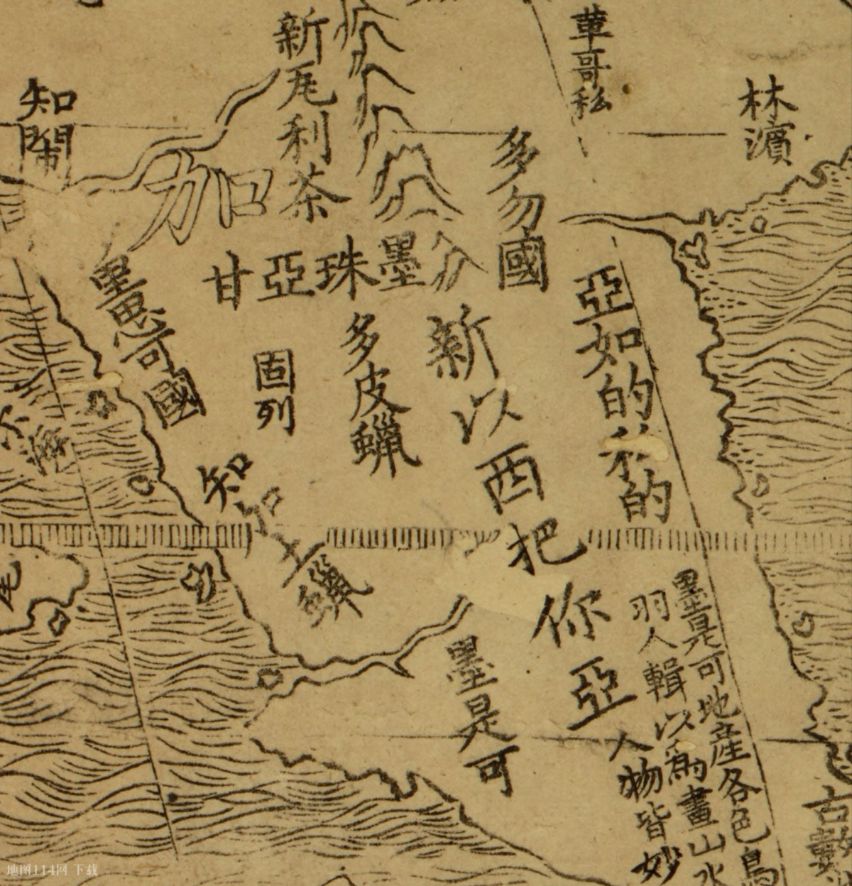 葷哥私
林濱
新瓦利茶
知鬧
加
多勿國
墨
珠
亞
甘
墨思可國
固列
多皮蠟
新以西把你亞
亞如的私的
知加土蠟
墨是可
墨是可地產各色鳥
羽人輯以爲畫山水
人物皆妙
古數
地图114网 下载